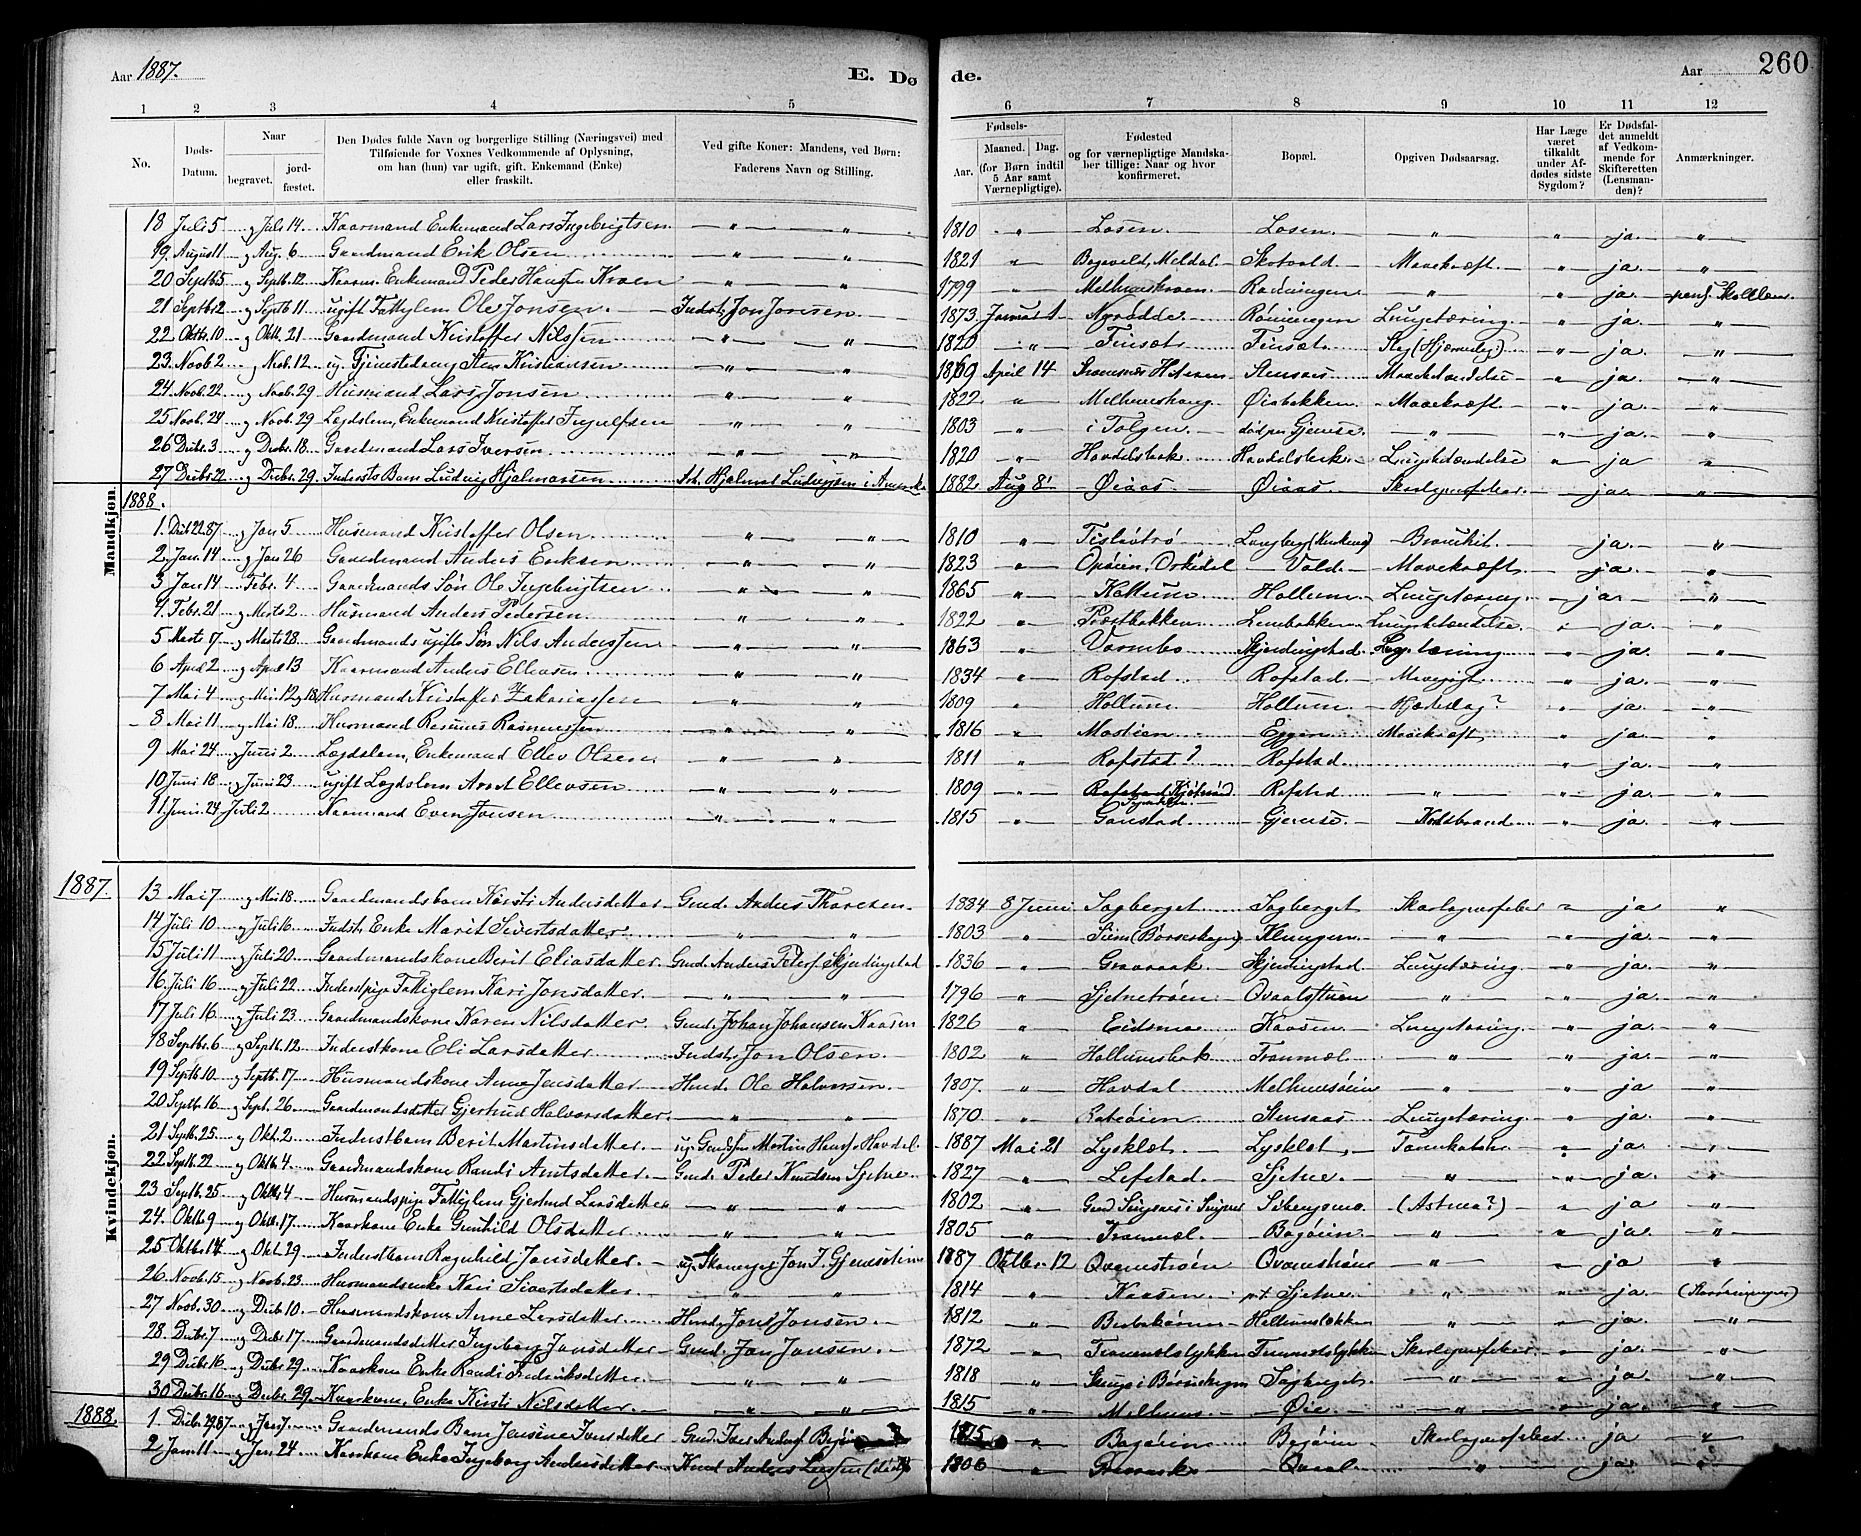 Aar 1887. E. Dø de. Aar 260
1 2 3 4 5 6 7 8 9 10 11 12
No. Døds-Datum. Naar begravet. jord-fæstet. Den Dødes fulde Navn og borgerlige Stilling (Næringsvei) med Tilføiende for Voxnes Vedkommende af Oplysning, om han (hun) var ugift, gift, Enkemand (Enke) eller fraskilt. Ved gifte Koner: Mandens, ved Børn: Faderens Navn og Stilling. Fødsels- Aar. Maaned. Dag. (for Børn indtil 5 Aar samt Værnepligtige). Fødested og for værnepligtige Mandska-ber tillige: Naar og hvor konfirmeret. Bopæl. Opgiven Dødsaarsag. Har Læge været tilkaldt under Af-dødes sidste Sygdom? Er Dødsfal-det anmeldt af Vedkom-mende for Skifteretten (Lensman-den)? Anmærkninger.
Mandkjøn.
18 Juli 5 " Juli 14. Kaarmand Enkemand Lars Ingebrigtsen " " 1810 " Losen Losen " " ja "
19. August 1 " Aug. 6 Gaardmand Erik Olsen " " 1821 " Meldal Skotvold Mavekræft " ja "
20 Septb 5 " Septb. 12 Kaarm. Enkemand Peder Hansen Kroen " " 1799 " Melhuuskroen Rønningen " " ja
21 Septb 2 " Septb 11 ugift Fattiglem Ole Jonsen Inderst, Jon Jonsen 1873 Januar 1 Rønningen Lungetæring " ja "
22 Oktb. 10 " Oktb. 21 Gaardmand Kristoffer Nilssen " " 1820 " Finsæt Finsæt Slag " ja "
23. Novb 2 " Novb. 12 ug. Tjenestedreng Sten Kristiansen " " 1869 April 14 Mavebetændelse " ja "
24. Novb. 22 " Novb. 29 Husmand Lars Jonsen " " 1822 " Melhuushaug Øiabakken Mavekræft " ja "
25 Novb. 24 " Novb. 29 Lægdslem, Enkemand Kristoffer Ingulfsen " " 1803 " i Tolgen død paa Gjemse " " ja "
26 Decbr. 3 " Decbr. 18. Gaardmand Lars Iversen " " 1820 " Havdelsbak Havdelsbak Lungebetændelse " ja "
27 Decbr. 22 " Decbr. 29. Inderst's Barn Ludvig Hjalmarsen Hjalmar Ludvigsen i Amerika 1882 Aug 8 Øiaas Øiaas Skarlagensfeber " ja "
1888.
1. Decb 22. 87 " Jan 5 Husmand Kristoffer Olsen " " 1810 " Bronkit. ja "
2. Jan. 14 " Jan 26 Gaardmand Anders Eriksen " " 1823 " Opøien, Orkedal Vold Mavekræft " ja "
3 Jan. 14 Febr. 4 Gaardmands Søn Ole Ingebrigtsen " " 1865 " Hollum Hollum Lungetæring " ja "
4. Febr. 21 " Marts 2 Husmand Anders Pedersen " " 1822 " Præstbakken Lenbakken Lungebetændelse " ja "
5 Marts 17 " Marts 28. Gaardmands ugifte Søn Nils Anderssen " " 1863 " Varmbo Skjerdingstad Lungetæring " ja "
6 April 2 " April 13 Kaarmand Anders Ellevsen " " 1834 " Rofstad Rofstad Mavegigt " ja "
7 Mai 4 " Mai 12 og 18 Husmand Kristoffer Zakariassen " " 1809 " Hollum Hollum Hjerteslag? " ja "
8 Mai 11 " Mai 18. Husmand Rasmus Rasmussen " " 1816 " Mostien Eggen Mavekræft " ja "
9 Mai 24 " Juni 2 Lægdslem, Enkemand Ellev Olsen " " 1811 " Rofstad? Rofstad " ja "
10 Juni 18 " Juni 23 ugift Lægdslem Arnt Ellevsen " " 1809 " Rofstad " " ja "
11. Juni 24 Juli 2 Kaarmand Even Jonsen " " 1815 " Gaustad Gjemse Koldbrand " ja "
Kvindekjøn.
1887.
13 Mai 7 " Mai 18. Gaardmandsbarn Kirsti Andersdatter Gmd. Anders Thoresen 1884 8 Juni Sagberget Sagberget Skarlagensfeber " ja "
14 Juli 10 " Juli 16 Inderst, Enke Marit Sivertsdatter " " 1803 " Klungen " " ja "
15 Juli 11 " Juli 20. Gaardmandskone Berit Eliasdatter Gmd Anders Peders. Skjerdingstad 1836 " Gravraak Skjerdingstad Lungetæring " ja "
16. Juli 16 " Juli 22 Inderstpige Fattiglem Kari Jonsdatter " " 1796 " Sjetnetrøen " " ja "
17 Juli 16 " Juli 23 Gaardmandskone Karen Nilsdatter Gmd. Johan Johansen Kaasen 1826 " Eidsmo Kaasen Lungetæring " ja "
18 Septb. 6 " Septb. 12 Inderstkone Eli Larsdatter Inderst, Jon Olsen 1802 " Hollumsbak Tranmæl " " ja "
19 Septb 10 " Septb. 17 Husmandskone Anne Jensdatter Hmd. Ole Halvorsen 1807 " Havdal Melhusøien " " ja "
20 Septb. 16 " Sept. 26 Gaardmandsdatter Gjertrud Halvorsdatter " " 1870 " Stensaas Lungetæring " ja "
21 Septb. 25 " Okt. 2 Inderstbarn Berit Martinsdatter ug. Gmdsøn Martin Hansen Havdal 1887 Mai 21 Lysklæt Lysklæt " ja "
22 Septb. 22 " Oktb. 4 Gaardmandskone Randi Arntsdatter Gmd. Peder Knudsen Sjetne 1827 " Lefstad Sjetne " " ja "
23 Septb. 25 " Oktb. 4 Husmandspige Fattiglem Gjertrud Larsdatter " " 1802 " (Astma?) " ja "
24. Oktb. 9 " Oktb. 17. Kaarkone Enke Gunhild Olsdatter " " 1805 " Tranmæl Bagøien " " ja "
25 Oktbr. 14 " Okt. 29. Inderstbarn Ragnhild Jonsdatter 1887 Oktbr. 12 Qvamstrøen Qvamstrøen " " ja "
26. Novb. 15 " Novb. 23 Husmandsenke Kari Sivertsdatter " " 1814 " Kaasen Sjetne " " ja
27 Novb. 30 " Decb 10. Husmandskone Anne Larsdatter Hmd. Jens Jonsen 1812 " " " ja "
28. Decbr. 7 " Decbr 17. Gaardmandsdatter Ingeborg Jonsdatter Gmd. Jon Jonsen 1872 " Skarlagensfeber " ja "
29 Decbr 16 " Decbr. 29. Kaarkone Enke Randi Fredriksdatter " " 1818 " Sagberget " " ja "
30 Decbr. 16 " Decbr. 29 Kaarkone, Enke Kirsti Nilsdatter " " 1815 " Melhuus Øie " " ja "
1888
1. Decbr. 29. 87 " Jan 7. Gaardmands Barn Jensine Iversdatter Gmd. Iver 1875 " Bagøien Bagøien Skarlagensfeber " ja "
2 Jan. 11 " Jan 24. Kaarkone Enke Ingeborg Andersdatter Kmd Anders Larssen 1806 " Qvaal " " ja "